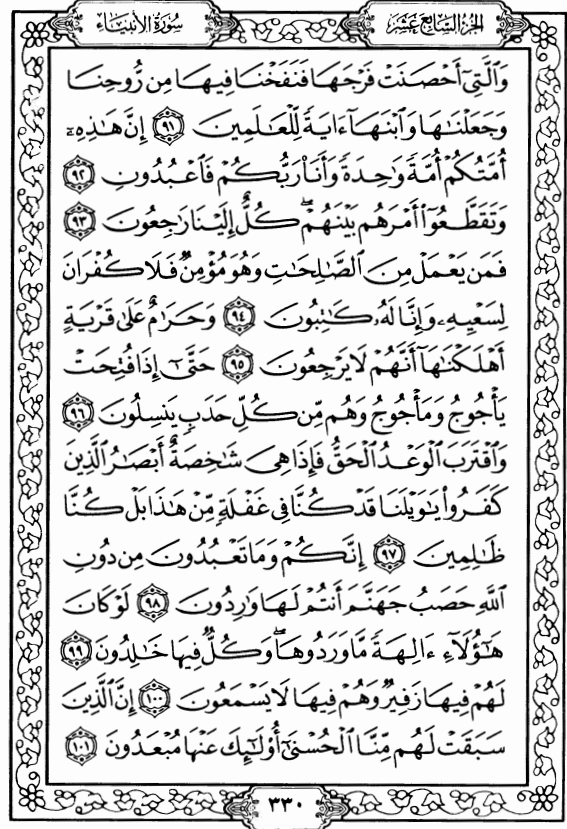 سُورَةُ الأَنْبِيَاء
الجُزْءُ السَّابِعَ عَشَرَ
وَٱلَّتِىٓ أَحْصَنَتْ فَرْجَهَا فَنَفَخْنَا فِيهَا مِن رُّوحِنَا
وَجَعَلْنَٰهَا وَٱبْنَهَآ ءَايَةً لِّلْعَٰلَمِينَ ٩١ إِنَّ هَٰذِهِۦٓ
أُمَّتُكُمْ أُمَّةً وَٰحِدَةً وَأَنَا۠ رَبُّكُمْ فَٱعْبُدُونِ ٩٢
وَتَقَطَّعُوٓا۟ أَمْرَهُم بَيْنَهُمْ ۖ كُلٌّ إِلَيْنَا رَٰجِعُونَ ٩٣
فَمَن يَعْمَلْ مِنَ ٱلصَّٰلِحَٰتِ وَهُوَ مُؤْمِنٌ فَلَا كُفْرَانَ
لِسَعْيِهِۦ وَإِنَّا لَهُۥ كَٰتِبُونَ ٩٤ وَحَرَٰمٌ عَلَىٰ قَرْيَةٍ
أَهْلَكْنَٰهَآ أَنَّهُمْ لَا يَرْجِعُونَ ٩٥ حَتَّىٰٓ إِذَا فُتِحَتْ
يَأْجُوجُ وَمَأْجُوجُ وَهُم مِّن كُلِّ حَدَبٍ يَنسِلُونَ ٩٦
وَٱقْتَرَبَ ٱلْوَعْدُ ٱلْحَقُّ فَإِذَا هِىَ شَٰخِصَةٌ أَبْصَٰرُ ٱلَّذِينَ
كَفَرُوا۟ يَٰوَيْلَنَا قَدْ كُنَّا فِى غَفْلَةٍ مِّنْ هَٰذَا بَلْ كُنَّا
ظَٰلِمِينَ ٩٧ إِنَّكُمْ وَمَا تَعْبُدُونَ مِن دُونِ
ٱللَّهِ حَصَبُ جَهَنَّمَ أَنتُمْ لَهَا وَٰرِدُونَ ٩٨ لَوْ كَانَ
هَٰٓؤُلَآءِ ءَالِهَةً مَّا وَرَدُوهَا ۖ وَكُلٌّ فِيهَا خَٰلِدُونَ ٩٩
لَهُمْ فِيهَا زَفِيرٌ وَهُمْ فِيهَا لَا يَسْمَعُونَ ١٠٠ إِنَّ ٱلَّذِينَ
سَبَقَتْ لَهُم مِّنَّا ٱلْحُسْنَىٰٓ أُو۟لَٰٓئِكَ عَنْهَا مُبْعَدُونَ ١٠١
٣٣٠